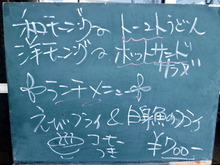 和モーニング トーストうどん
洋モーニング ホットサンド
サラダ
ランチメニュー
えびフライ & 白身魚のフライ
コーヒー
つき ¥700-